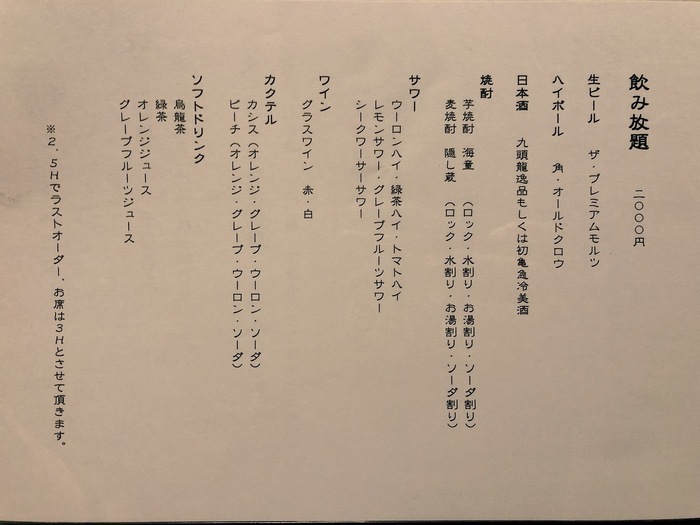 飲み放題　二〇〇〇円
生ビール　ザ・プレミアムモルツ
ハイボール　角・オールドクロウ
日本酒　九頭龍逸品もしくは初亀急冷美酒
焼酎
芋焼酎　海童　（ロック・水割り・お湯割り・ソーダ割り）
麦焼酎　隠し蔵　（ロック・水割り・お湯割り・ソーダ割り）
サワー
ウーロンハイ・緑茶ハイ・トマトハイ
レモンサワー・グレープフルーツサワー
シークワーサーサワー
ワイン
グラスワイン　赤・白
カクテル
カシス（オレンジ・グレープ・ウーロン・ソーダ）
ピーチ（オレンジ・グレープ・ウーロン・ソーダ）
ソフトドリンク
烏龍茶
緑茶
オレンジジュース
グレープフルーツジュース
※２．５Ｈでラストオーダー、お席は３Ｈとさせて頂きます。